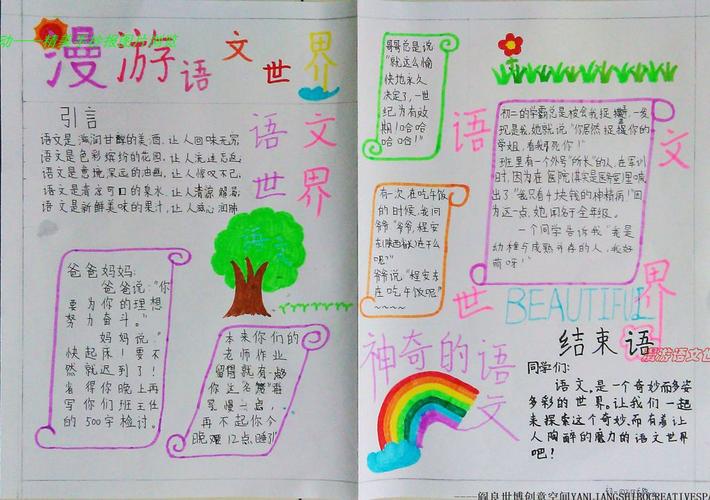 漫游语文世界
引言
语文是
甘醇的美酒,让人回味无穷
语文是色彩缤纷的花园,让人流连忘返
语文是意境深远的油画,让人惊叹不已
语文是清凉可口的泉水,让人清凉解渴
语文是新鲜美味的果汁,让人
语文
世界
语文
爸爸妈妈:
爸爸说:"你
要为你的理想
努力奋斗。"
妈妈说:"
快起床!要不
然就迟到了!
省得你晚上再
写你们班主任
的500字检讨。
本来你们的
老师作业
留得就有
你这名
慢一点,
再不起你今
晚
12点
哥哥总是说
"就这么愉
快地永久
决定了,一世
纪为有效
期!哈哈
哈哈哈!"
有一次,在吃午饭
的时候,我问
爷爷:"爷爷,程安
在干么
呢?"
爷爷说:"程安东
在吃午饭呢"
~~~~
语
文
世
界
初二的学霸总是被会我捉
,一发
现是我,她就说:"你居然捉
你的
学姐,看我弄死你!"
班里有一个外号"所长"的人,在军训
时,因为在医院(其实是医务室里喊
出了"我只有4块钱的神精病!"因
为这一点,她闻名于全年级。
一个同学告诉我"我是
幼稚与成熟并存的人,我好
萌呀!"
BEAUTIFUL
神奇的语
文
结束语
漫游语文世
同学们:
语文,是一个奇妙而多姿
多彩的世界。让我们一起
来探索这个奇妙而有着让
人陶醉的魔力的语文世界
吧!
阎良世博创意空间YANLIANGSHIBOCREATIVESP